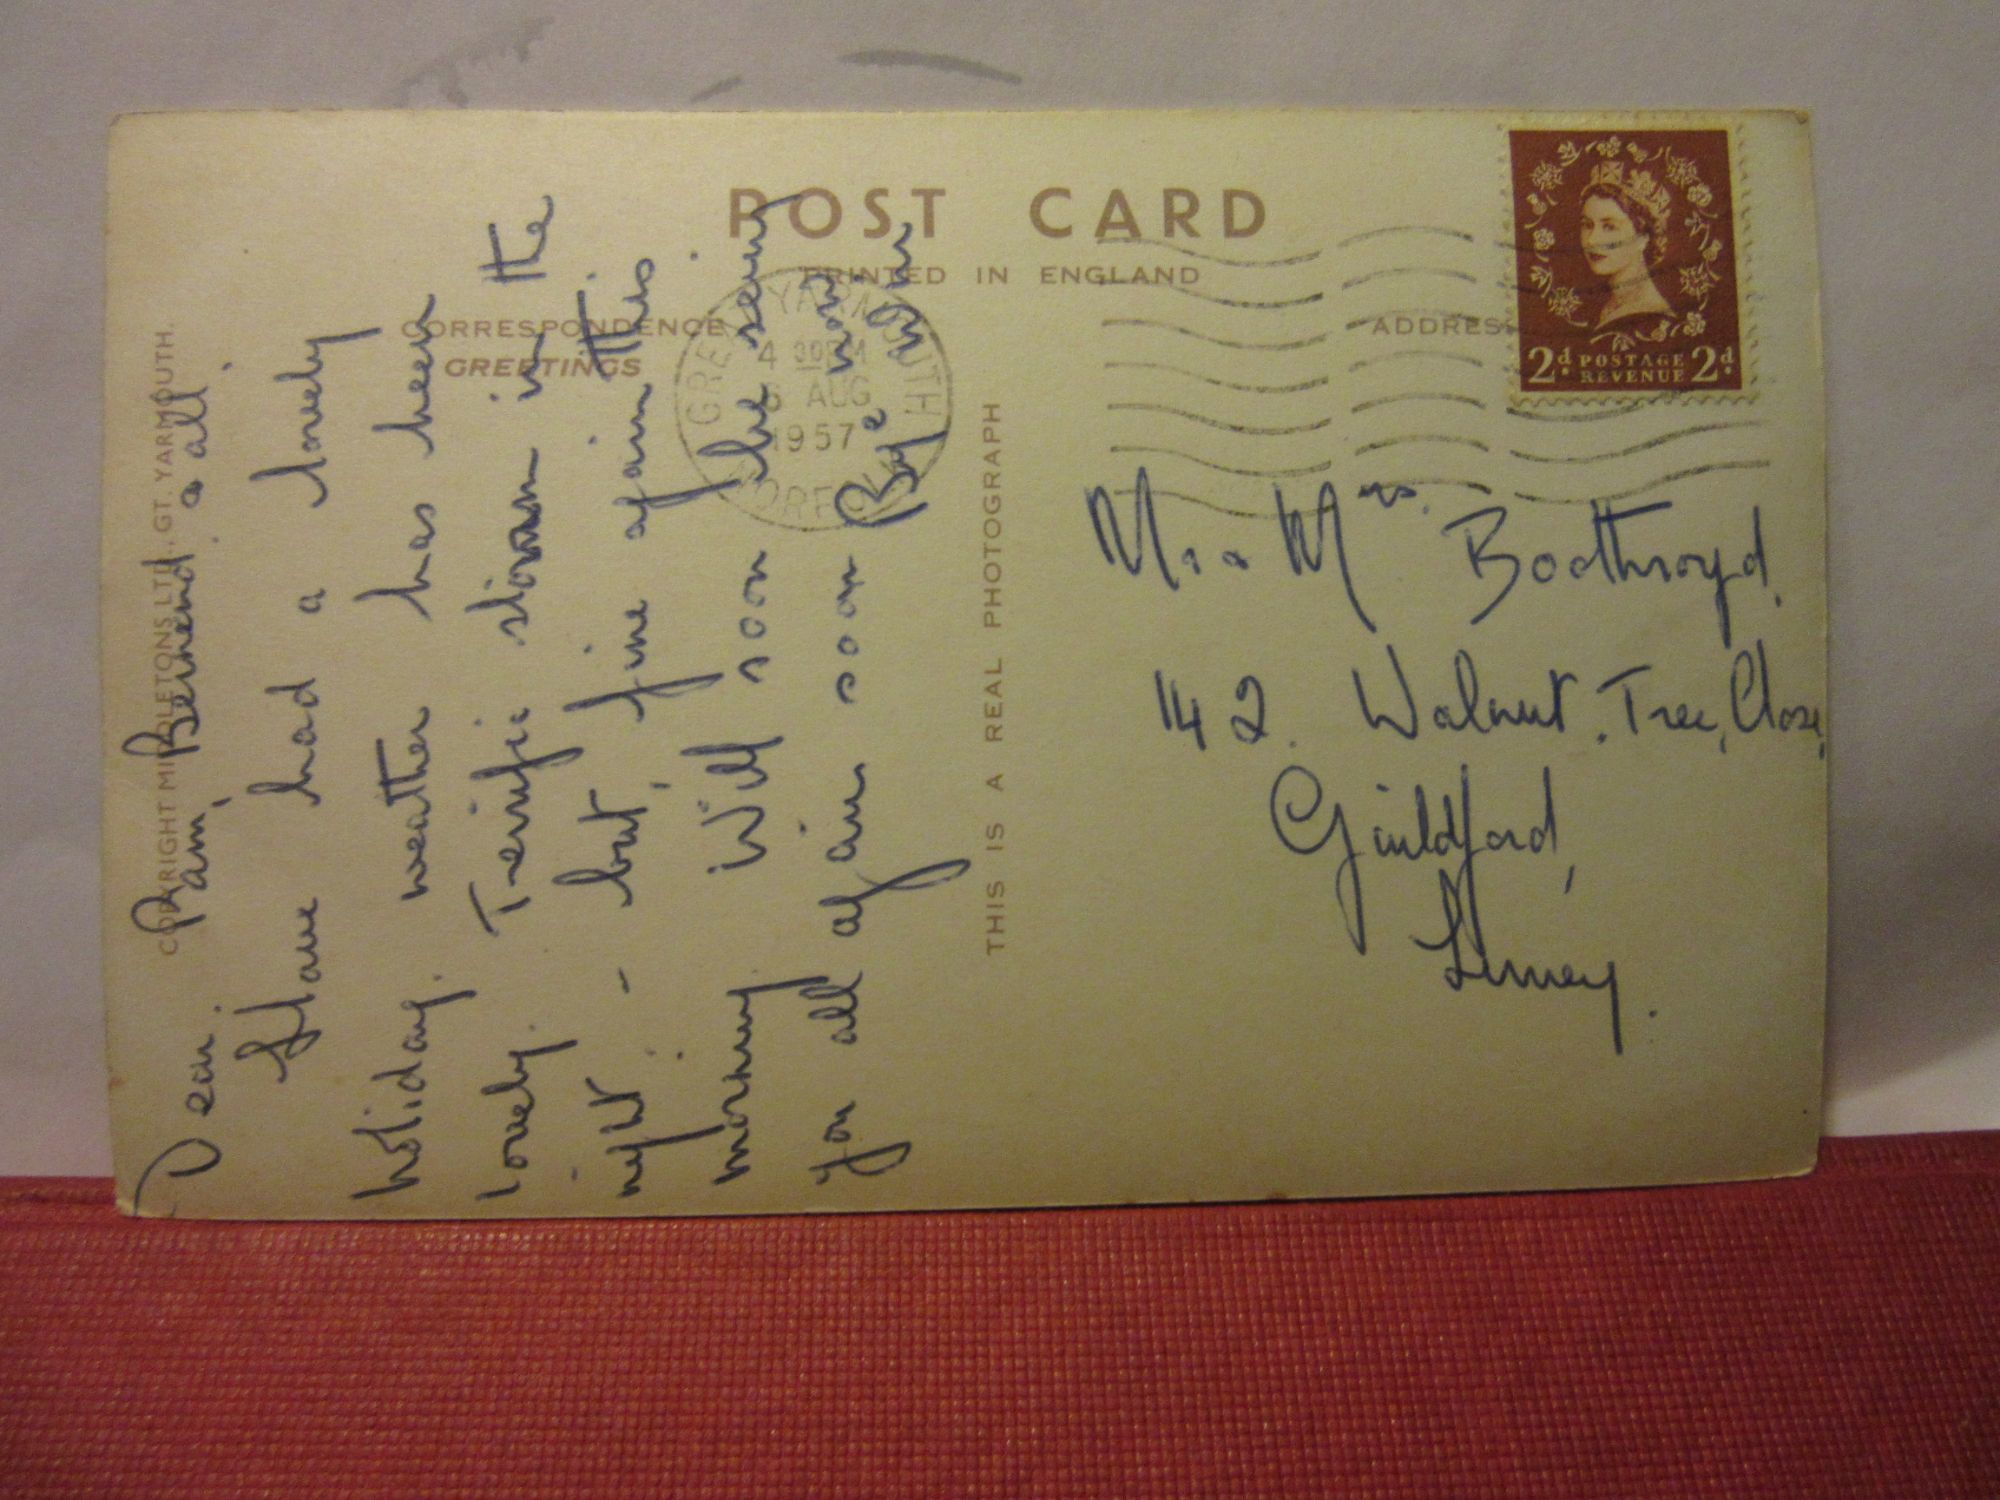 POST CARD
PRINTED IN ENGLAND
CORRESPONDENCE
GREETINGS
ADDRESS
COPYRIGHT MIDDLETONS LTD., GT. YARMOUTH.
THIS IS A REAL PHOTOGRAPH
GREAT YARMOUTH
4 30PM
6 AUG
1957
NORFOLK
2d POSTAGE 2d
REVENUE
Dear Pam, & all,
Have had a lovely
holiday. weather has been
lovely. Terrific storm in the
night - but fine again this
morning. Will soon be seeing
you all again soon Bye now
Mr & Mrs. Boothroyd.
142. Walnut. Tree, Close,
Guildford,
Surrey.